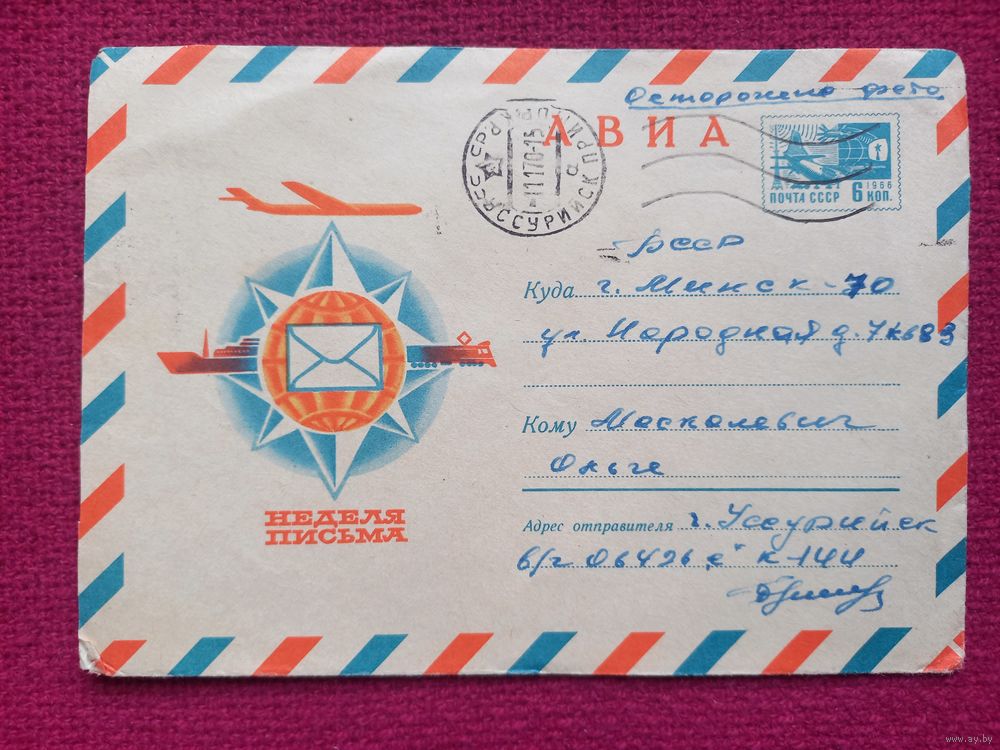 Осторожно фото
АВИА
УССУРИЙСК ПРИМОР.КР.
СССР
11170-15
а
1966
ПОЧТА СССР 6 КОП.
БССР
Куда г. Минск-70
ул. Народная д. 7 кв 83
Кому Москалевич
Ольге
НЕДЕЛЯ
ПИСЬМА
Адрес отправителя г. Уссурийск
в/ч 06426 "е" к-144
www.ay.by